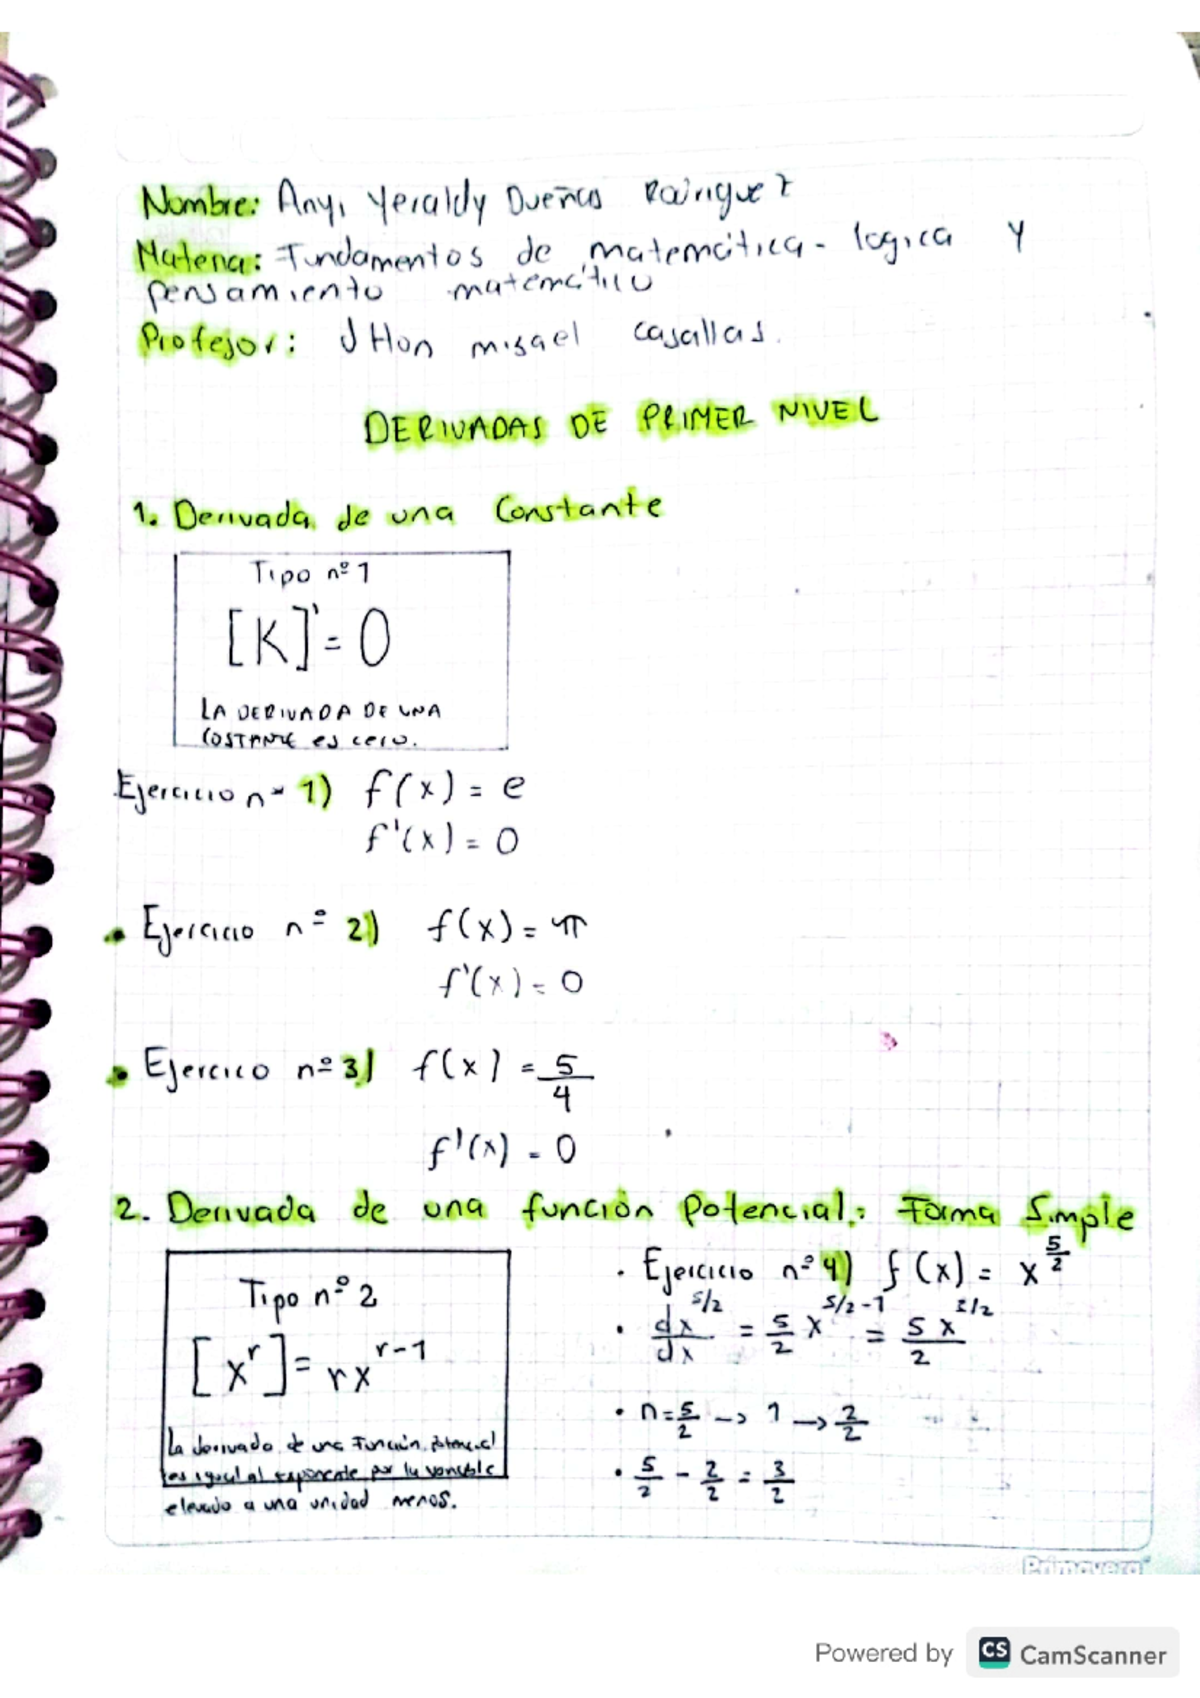 Nombre: Anyi Yeraldy Dueñas
Materia: Fundamentos de matemática - logica y
pensamiento matemático
Profesor: JHon misael casallas.
DERIVADAS DE PRIMER NIVEL
1. Derivada de una Constante
Tipo nº 1
[K]' = 0
LA DERIVADA DE UNA
COSTANTE es cero.
Ejercicio nº 1) f(x) = e
f'(x) = 0
• Ejercicio nº 2) f(x) = π
f'(x) = 0
• Ejercico nº 3) f(x) = 5/4
f'(x) = 0
2. Derivada de una función Potencial: Forma Simple
Tipo nº 2
[x^r] = rx^(r-1)
La derivada de una Función potencial
es igual al exponente por la variable
elevado a una unidad menos.
• Ejercicio nº 4) f(x) = x^(5/2)
• dx^(5/2)/dx = 5/2 x^(5/2-1) = 5x^(3/2)/2
• n = 5/2 -> 1 -> 2/2
• 5/2 - 2/2 = 3/2
Primavera
Powered by CS CamScanner